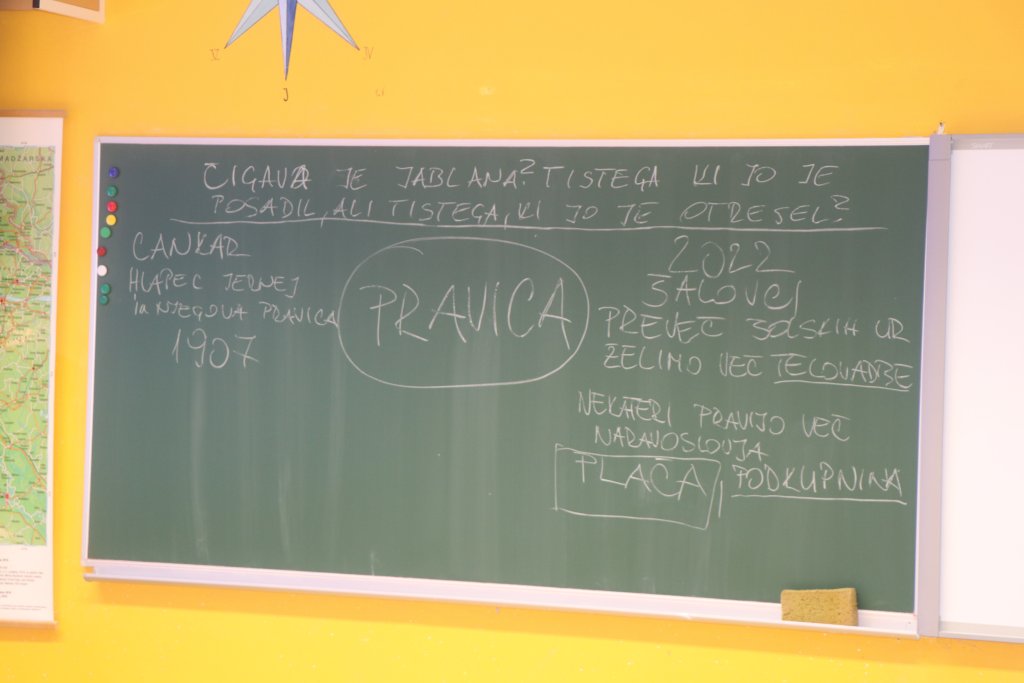 J
V
MADŽARSKA
ČIGAVA JE JABLANA? TISTEGA KI JO JE
POSADIL, ALI TISTEGA, KI JO JE OTRESEL?
CANKAR
HLAPEC JERNEJ
in NJEGOVA PRAVICA
1907
PRAVICA
2022
ŠALOVCI
PREVEČ ŠOLSKIH UR
ŽELIMO VEČ TELOVADBE
NEKATERI PRAVIJO VEČ
NARAVOSLOVJA
PLAČA, PODKUPNINA